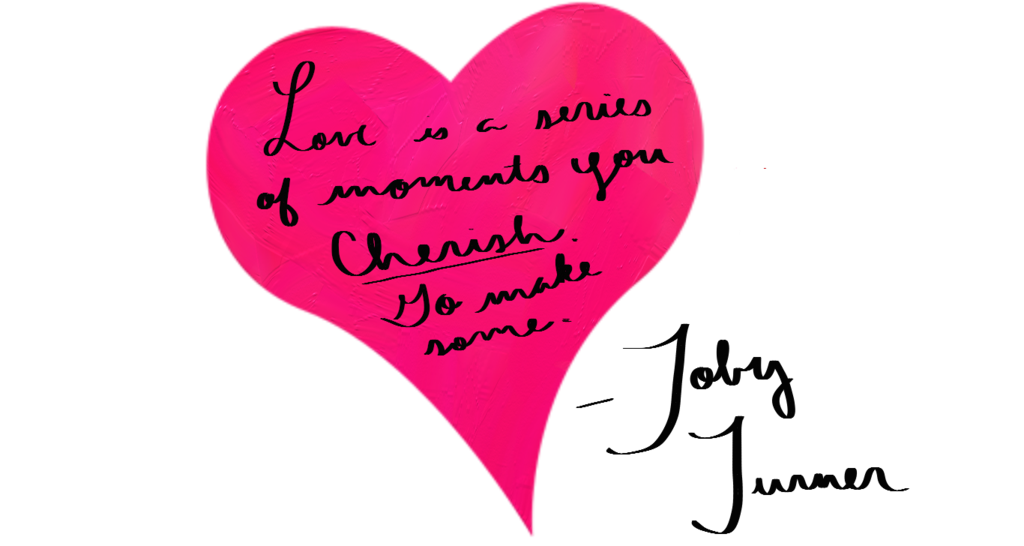 Love is a series
of moments you
Cherish.
Go make
some.
- Toby
Turner